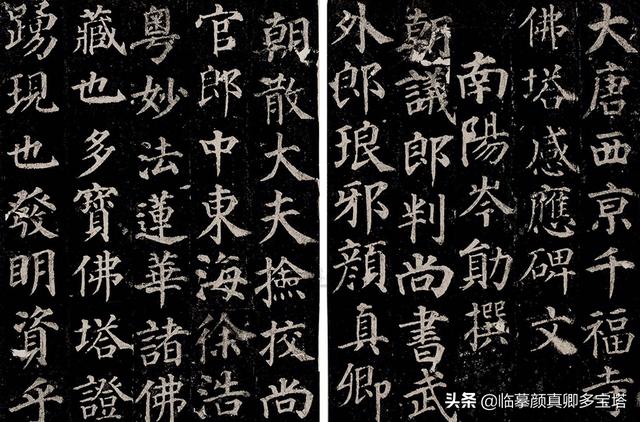 大唐西京千福寺
佛塔感應碑文
南陽岑勛撰
朝議郎判尚書武
外郎琅邪顏真卿
朝散大夫撿挍尚
官郎中東海徐浩
粵妙法蓮華諸佛
藏也多寶佛塔證
踴現也發明資乎
头条 @临摹颜真卿多宝塔